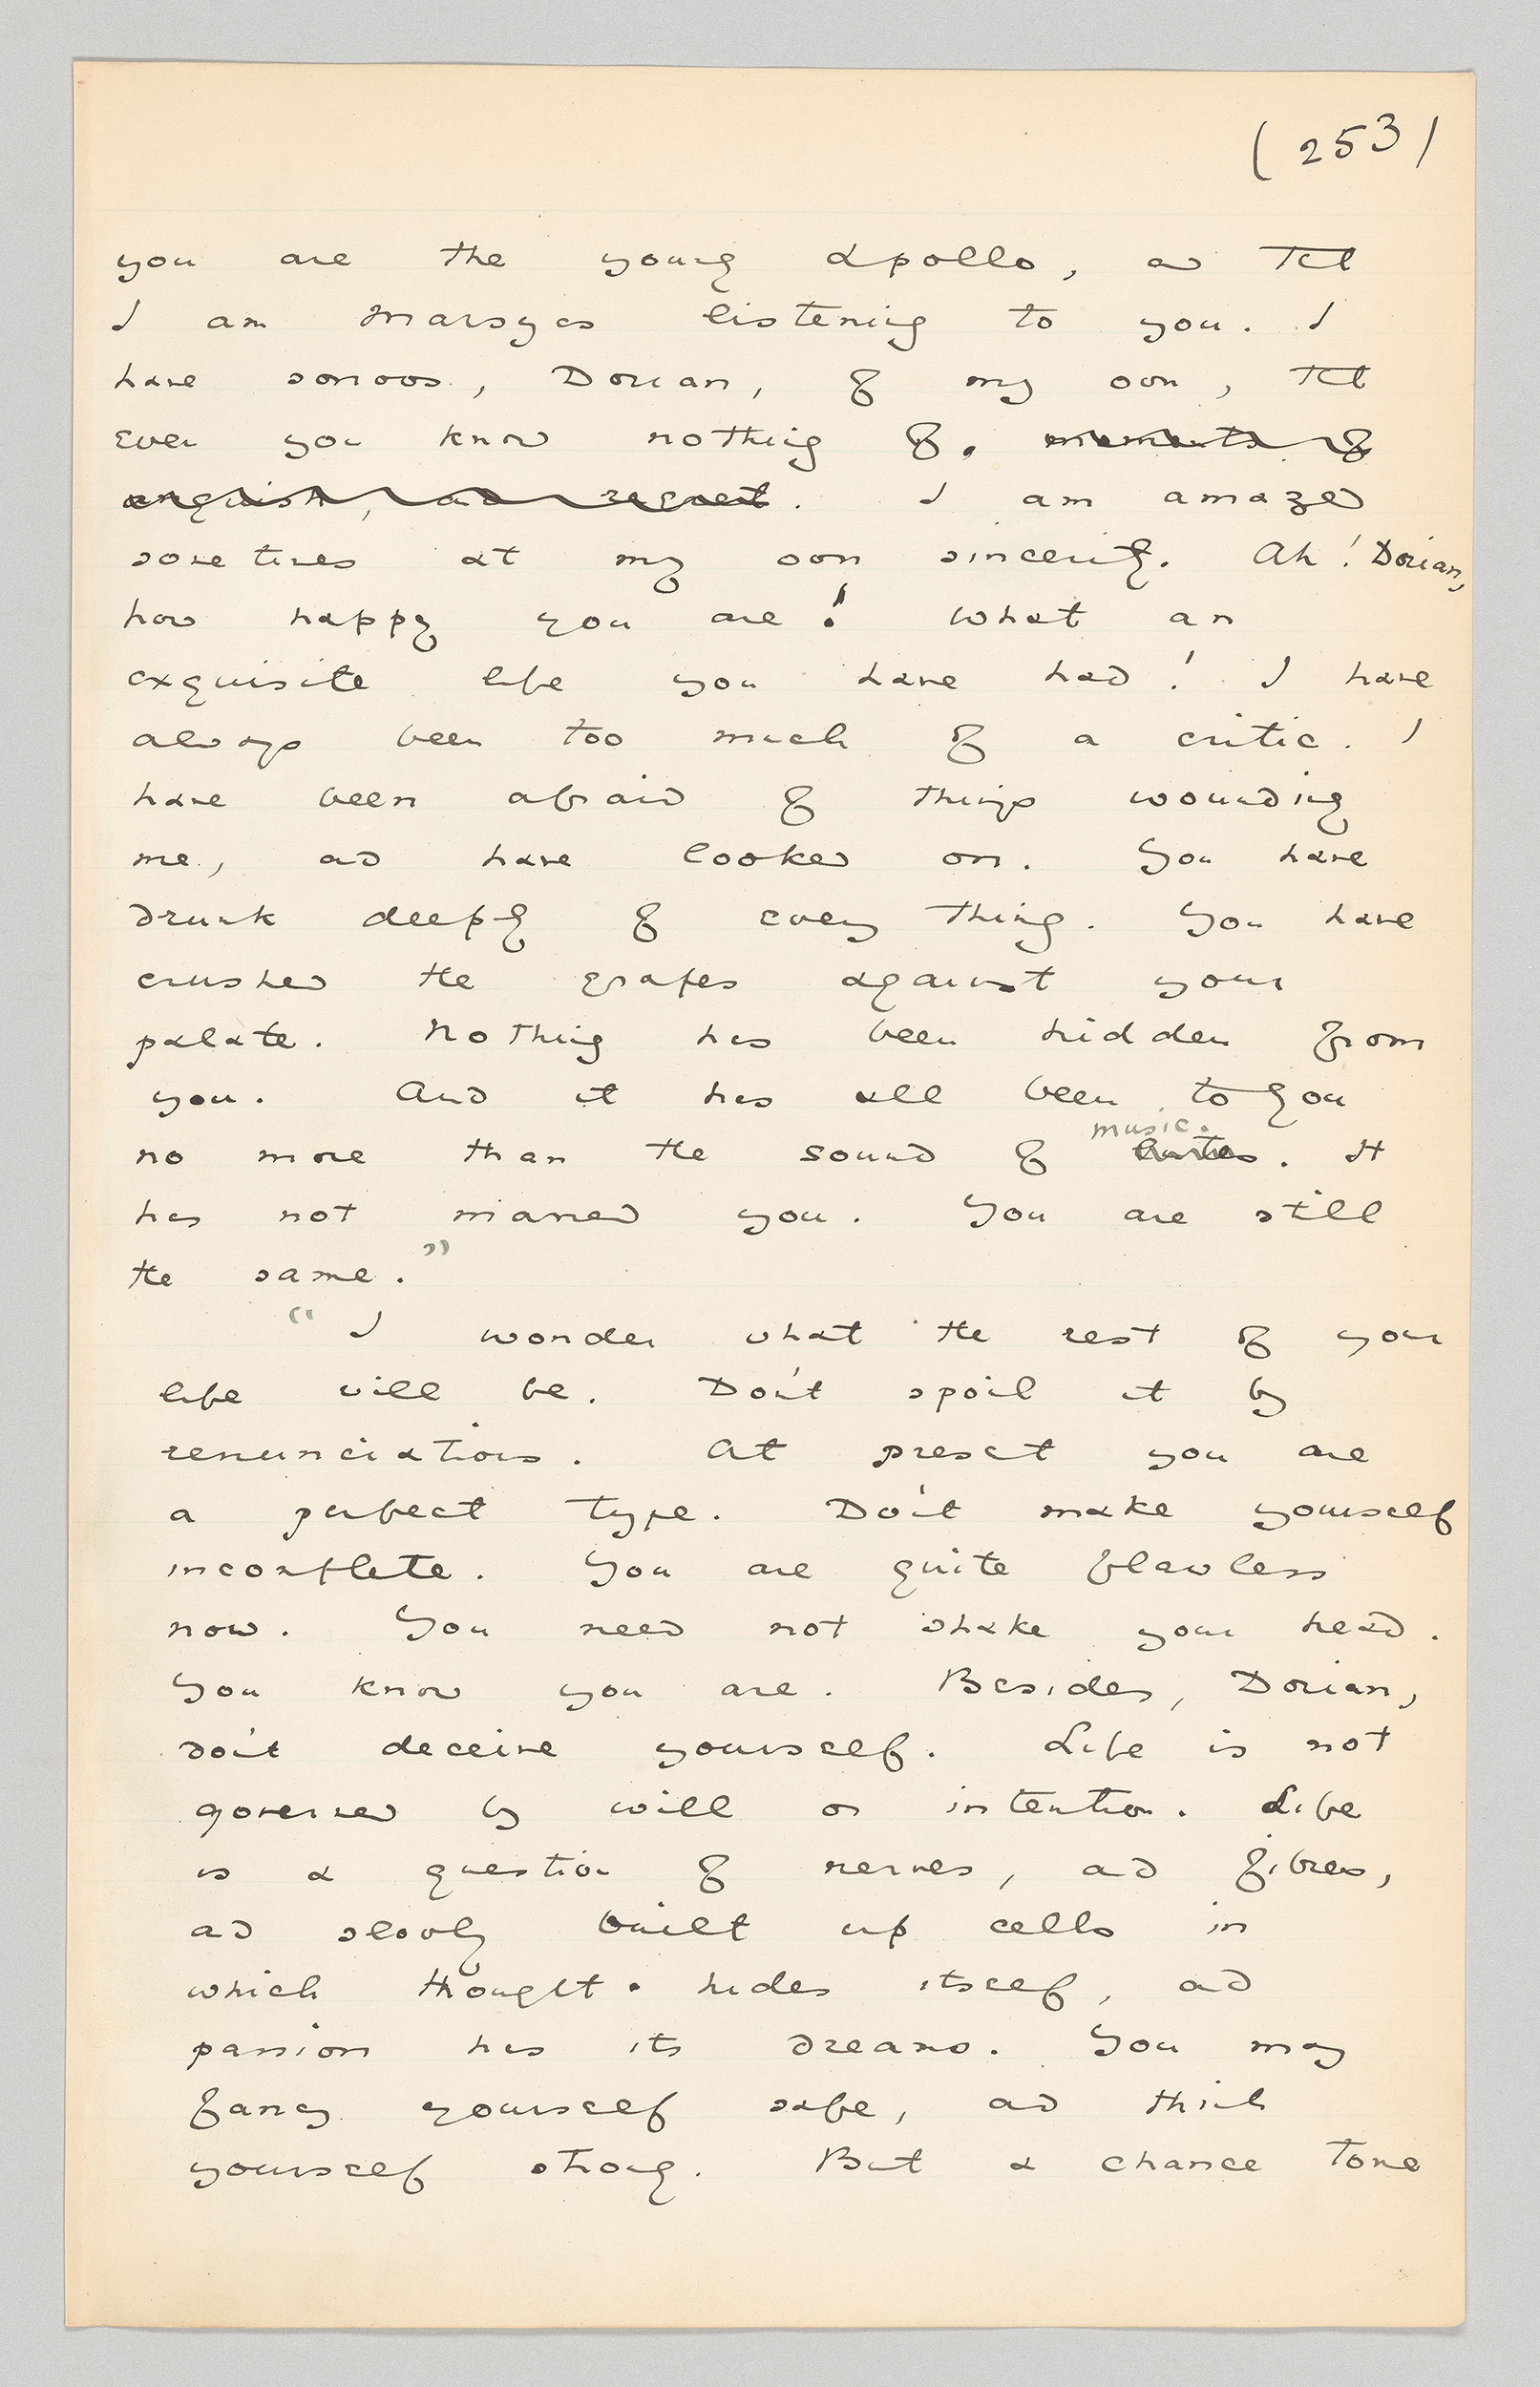 (253)
you are the young Apollo, and that
I am Marsyas listening to you. I
have sorrows, Dorian, of my own, that
even you know nothing of. moments of
anguish, and regret. I am amazed
sometimes at my own sincerity. Ah! Dorian,
how happy you are! What an
exquisite life you have had! I have
always been too much of a critic. I
have been afraid of things wounding
me, and have looked on. You have
drunk deeply of every thing. You have
crushed the grapes against your
palate. Nothing has been hidden from
you. And it has all been to you
music.
no more than the sound of. It
has not marred you. You are still
the same."
"I wonder what the rest of your
life will be. Don't spoil it by
renunciations. At present you are
a perfect type. Don't make yourself
incomplete. You are quite flawless
now. You need not shake your head.
You know you are. Besides, Dorian,
don't deceive yourself. Life is not
governed by will or intention. Life
is a question of nerves, and fibres,
and slowly built up cells in
which thought hides itself, and
passion has its dreams. You may
fancy yourself safe, and think
yourself strong. But a chance tone